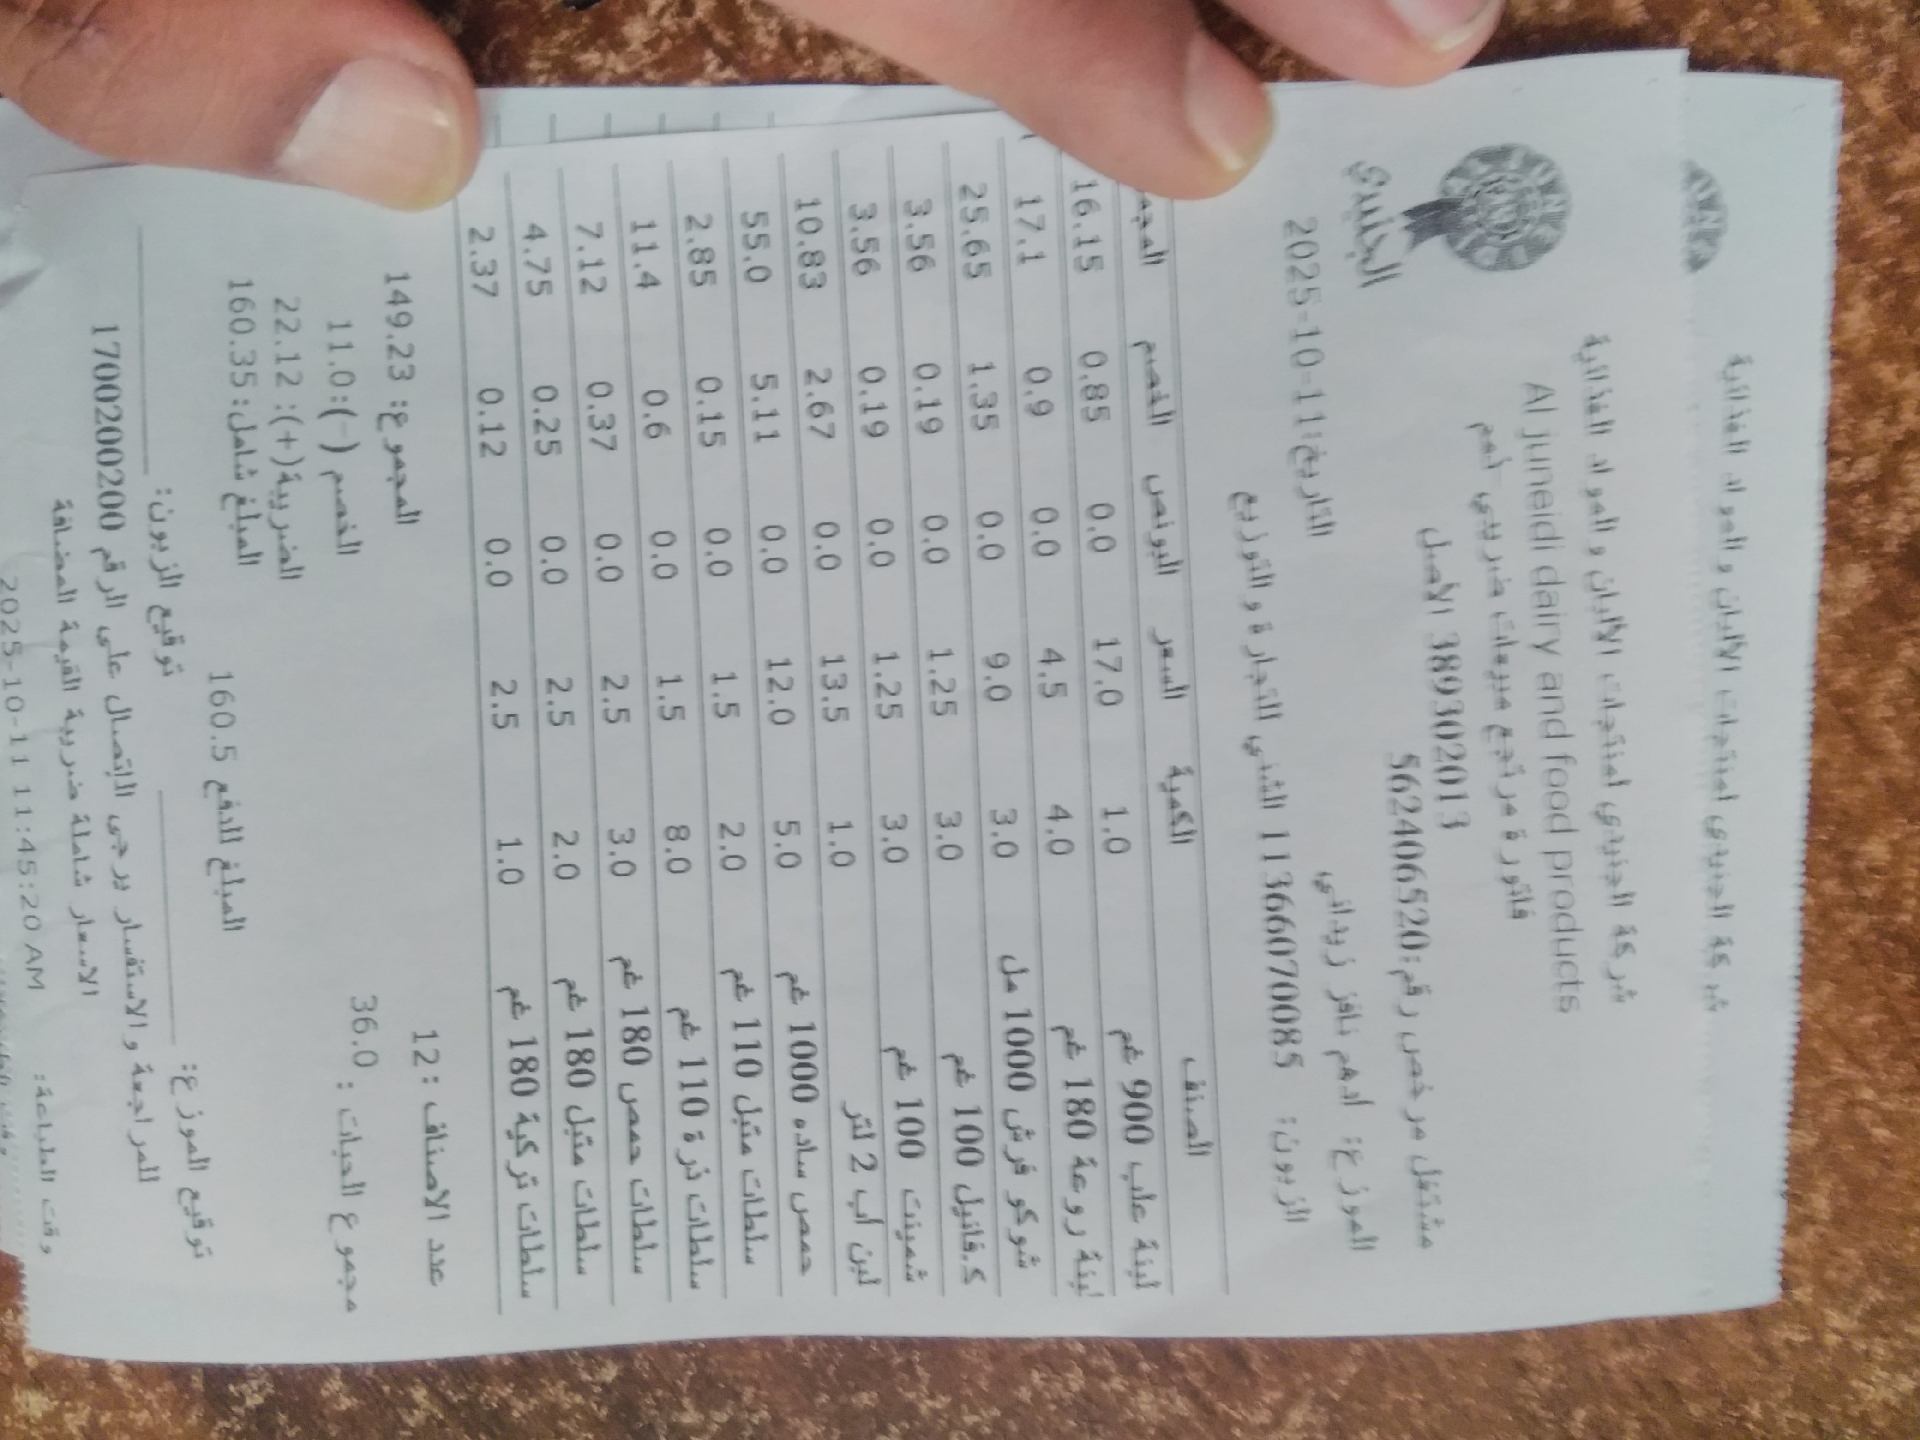 شركة الجنيدي لمنتجات الألبان والمواد الغذائية
الجنيدي
شركة الجنيدي لمنتجات الألبان والمواد الغذائية
Al juneidi dairy and food products
فاتورة مرتجع مبيعات ضريبي لهم
389302013 الأصل
مشتغل مرخص رقم:562406520
التاريخ:11-10-2025
الموزع: ادهم نافز زيداني
الزبون: 1136607085 الثني للتجارة والتوزيع
الصنف الكمية السعر البونص الخصم
لبنة علب 900 غم 1.0 17.0 0.0 0.85 16.15
لبنة روعة 180 غم 4.0 4.5 0.0 0.9 17.1
شوكو فرش 1000 مل 3.0 9.0 0.0 1.35 25.65
ك.فانيل 100 غم 3.0 1.25 0.0 0.19 3.56
شمينت 100 غم 3.0 1.25 0.0 0.19 3.56
لبن اب 2 لتر 1.0 13.5 0.0 2.67 10.83
حمص ساده 1000 غم 5.0 12.0 0.0 5.11 55.0
سلطات متبل 110 غم 2.0 1.5 0.0 0.15 2.85
سلطات ذرة 110 غم 8.0 1.5 0.0 0.6 11.4
سلطات حمص 180 غم 3.0 2.5 0.0 0.37 7.12
سلطات متبل 180 غم 2.0 2.5 0.0 0.25 4.75
سلطات تركية 180 غم 1.0 2.5 0.0 0.12 2.37
عدد الاصناف : 12 المجموع: 149.23
مجموع الحبات : 36.0 الخصم (-):11.0
الضريبة(+): 22.12
المبلغ شامل: 160.35
المبلغ للدفع 160.5
توقيع الموزع: توقيع الزبون:
للمراجعة والاستفسار يرجى الاتصال على الرقم 1700200200
الاسعار شاملة ضريبة القيمة المضافة
وقت الطباعة: 2025-10-11 11:45:20 AM